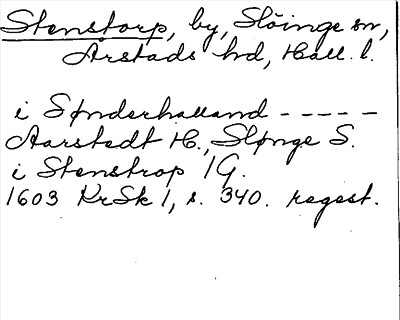 Stenstorp, by, Slöinge sn,
Årstads hd, Hall. l.
i Sønderhalland - - - - -
Aarstedt H., Slønge S.
i Stenstrop 1 G.
1603 KrSk 1, s. 340. regest.